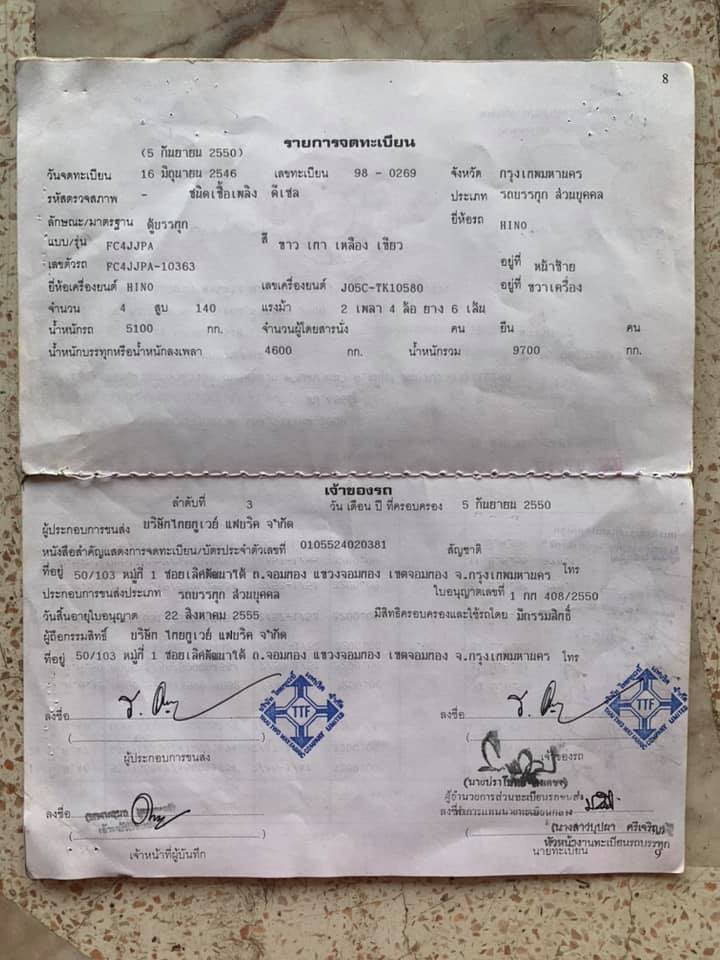 8
รายการจดทะเบียน
(5 กันยายน 2550)
วันจดทะเบียน 16 มิถุนายน 2546 เลขทะเบียน 98 - 0269 จังหวัด กรุงเทพมหานคร
รหัสตรวจสภาพ - ชนิดเชื้อเพลิง ดีเซล ประเภท รถบรรทุก ส่วนบุคคล
ลักษณะ/มาตรฐาน ตู้บรรทุก ยี่ห้อรถ HINO
แบบ/รุ่น FC4JJPA สี ขาว เทา เหลือง เขียว
เลขตัวรถ FC4JJPA-10363 อยู่ที่ หน้าซ้าย
ยี่ห้อเครื่องยนต์ HINO เลขเครื่องยนต์ J05C-TK10580 อยู่ที่ ขวาเครื่อง
จำนวน 4 สูบ 140 แรงม้า 2 เพลา 4 ล้อ ยาง 6 เส้น
น้ำหนักรถ 5100 กก. จำนวนผู้โดยสารนั่ง คน ยืน คน
น้ำหนักบรรทุกหรือน้ำหนักลงเพลา 4600 กก. น้ำหนักรวม 9700 กก.
เจ้าของรถ
ลำดับที่ 3 วัน เดือน ปี ที่ครอบครอง 5 กันยายน 2550
ผู้ประกอบการขนส่ง บริษัทไทยทูเวย์ แฟบริค จำกัด
หนังสือสำคัญแสดงการจดทะเบียน/บัตรประจำตัวเลขที่ 0105524020381 สัญชาติ
ที่อยู่ 50/103 หมู่ที่ 1 ซอยเลิศพัฒนาใต้ ถ.จอมทอง แขวงจอมทอง เขตจอมทอง จ.กรุงเทพมหานคร โทร
ประกอบการขนส่งประเภท รถบรรทุก ส่วนบุคคล ใบอนุญาตเลขที่ 1 กท 408/2550
วันสิ้นอายุใบอนุญาต 22 สิงหาคม 2555 มีสิทธิครอบครองและใช้รถโดย มีกรรมสิทธิ์
ผู้ถือกรรมสิทธิ์ บริษัท ไทยทูเวย์ แฟบริค จำกัด
ที่อยู่ 50/103 หมู่ที่ 1 ซอยเลิศพัฒนาใต้ ถ.จอมทอง แขวงจอมทอง เขตจอมทอง จ.กรุงเทพมหานคร โทร
TTF TTF
ลงชื่อ ลงชื่อ
ผู้ประกอบการขนส่ง เจ้าของรถ
ผู้อำนวยการส่วนทะเบียนรถขนส่ง
ลงชื่อ
(นางสาวบุปผา ศรีเจริญ)
หัวหน้างานทะเบียนรถบรรทุก
เจ้าหน้าที่ผู้บันทึก นายทะเบียน 9